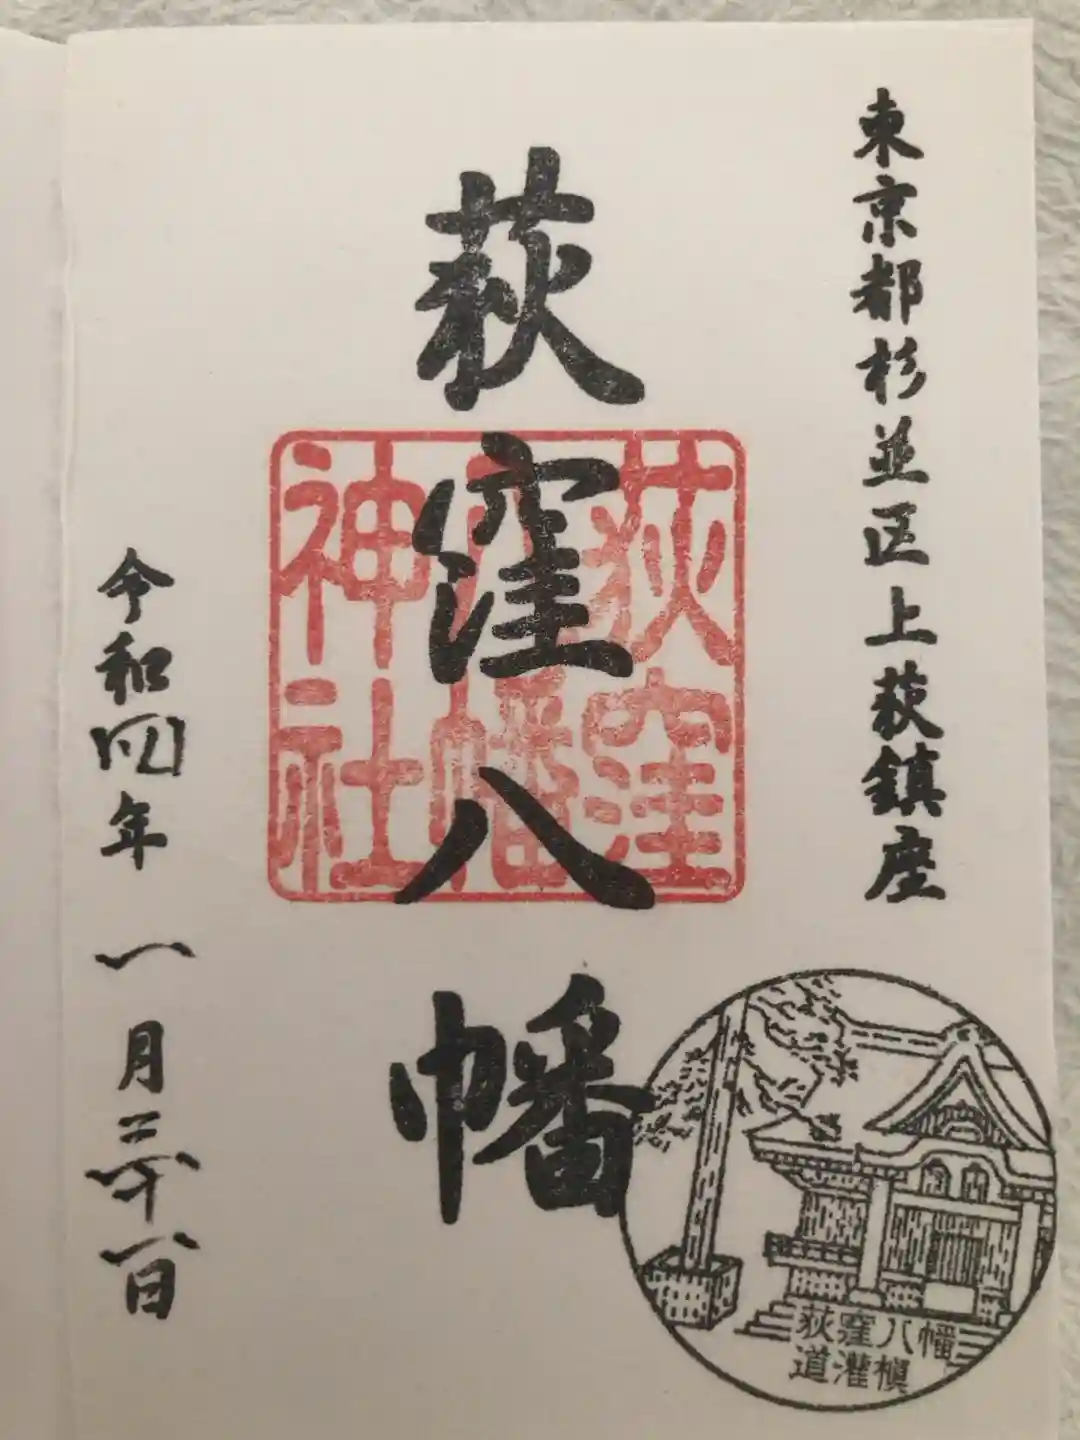 東京都杉並区上荻鎮座
荻窪八幡
荻窪
八幡
神社
令和四年 一月二十八日
荻窪八幡
道灌槇